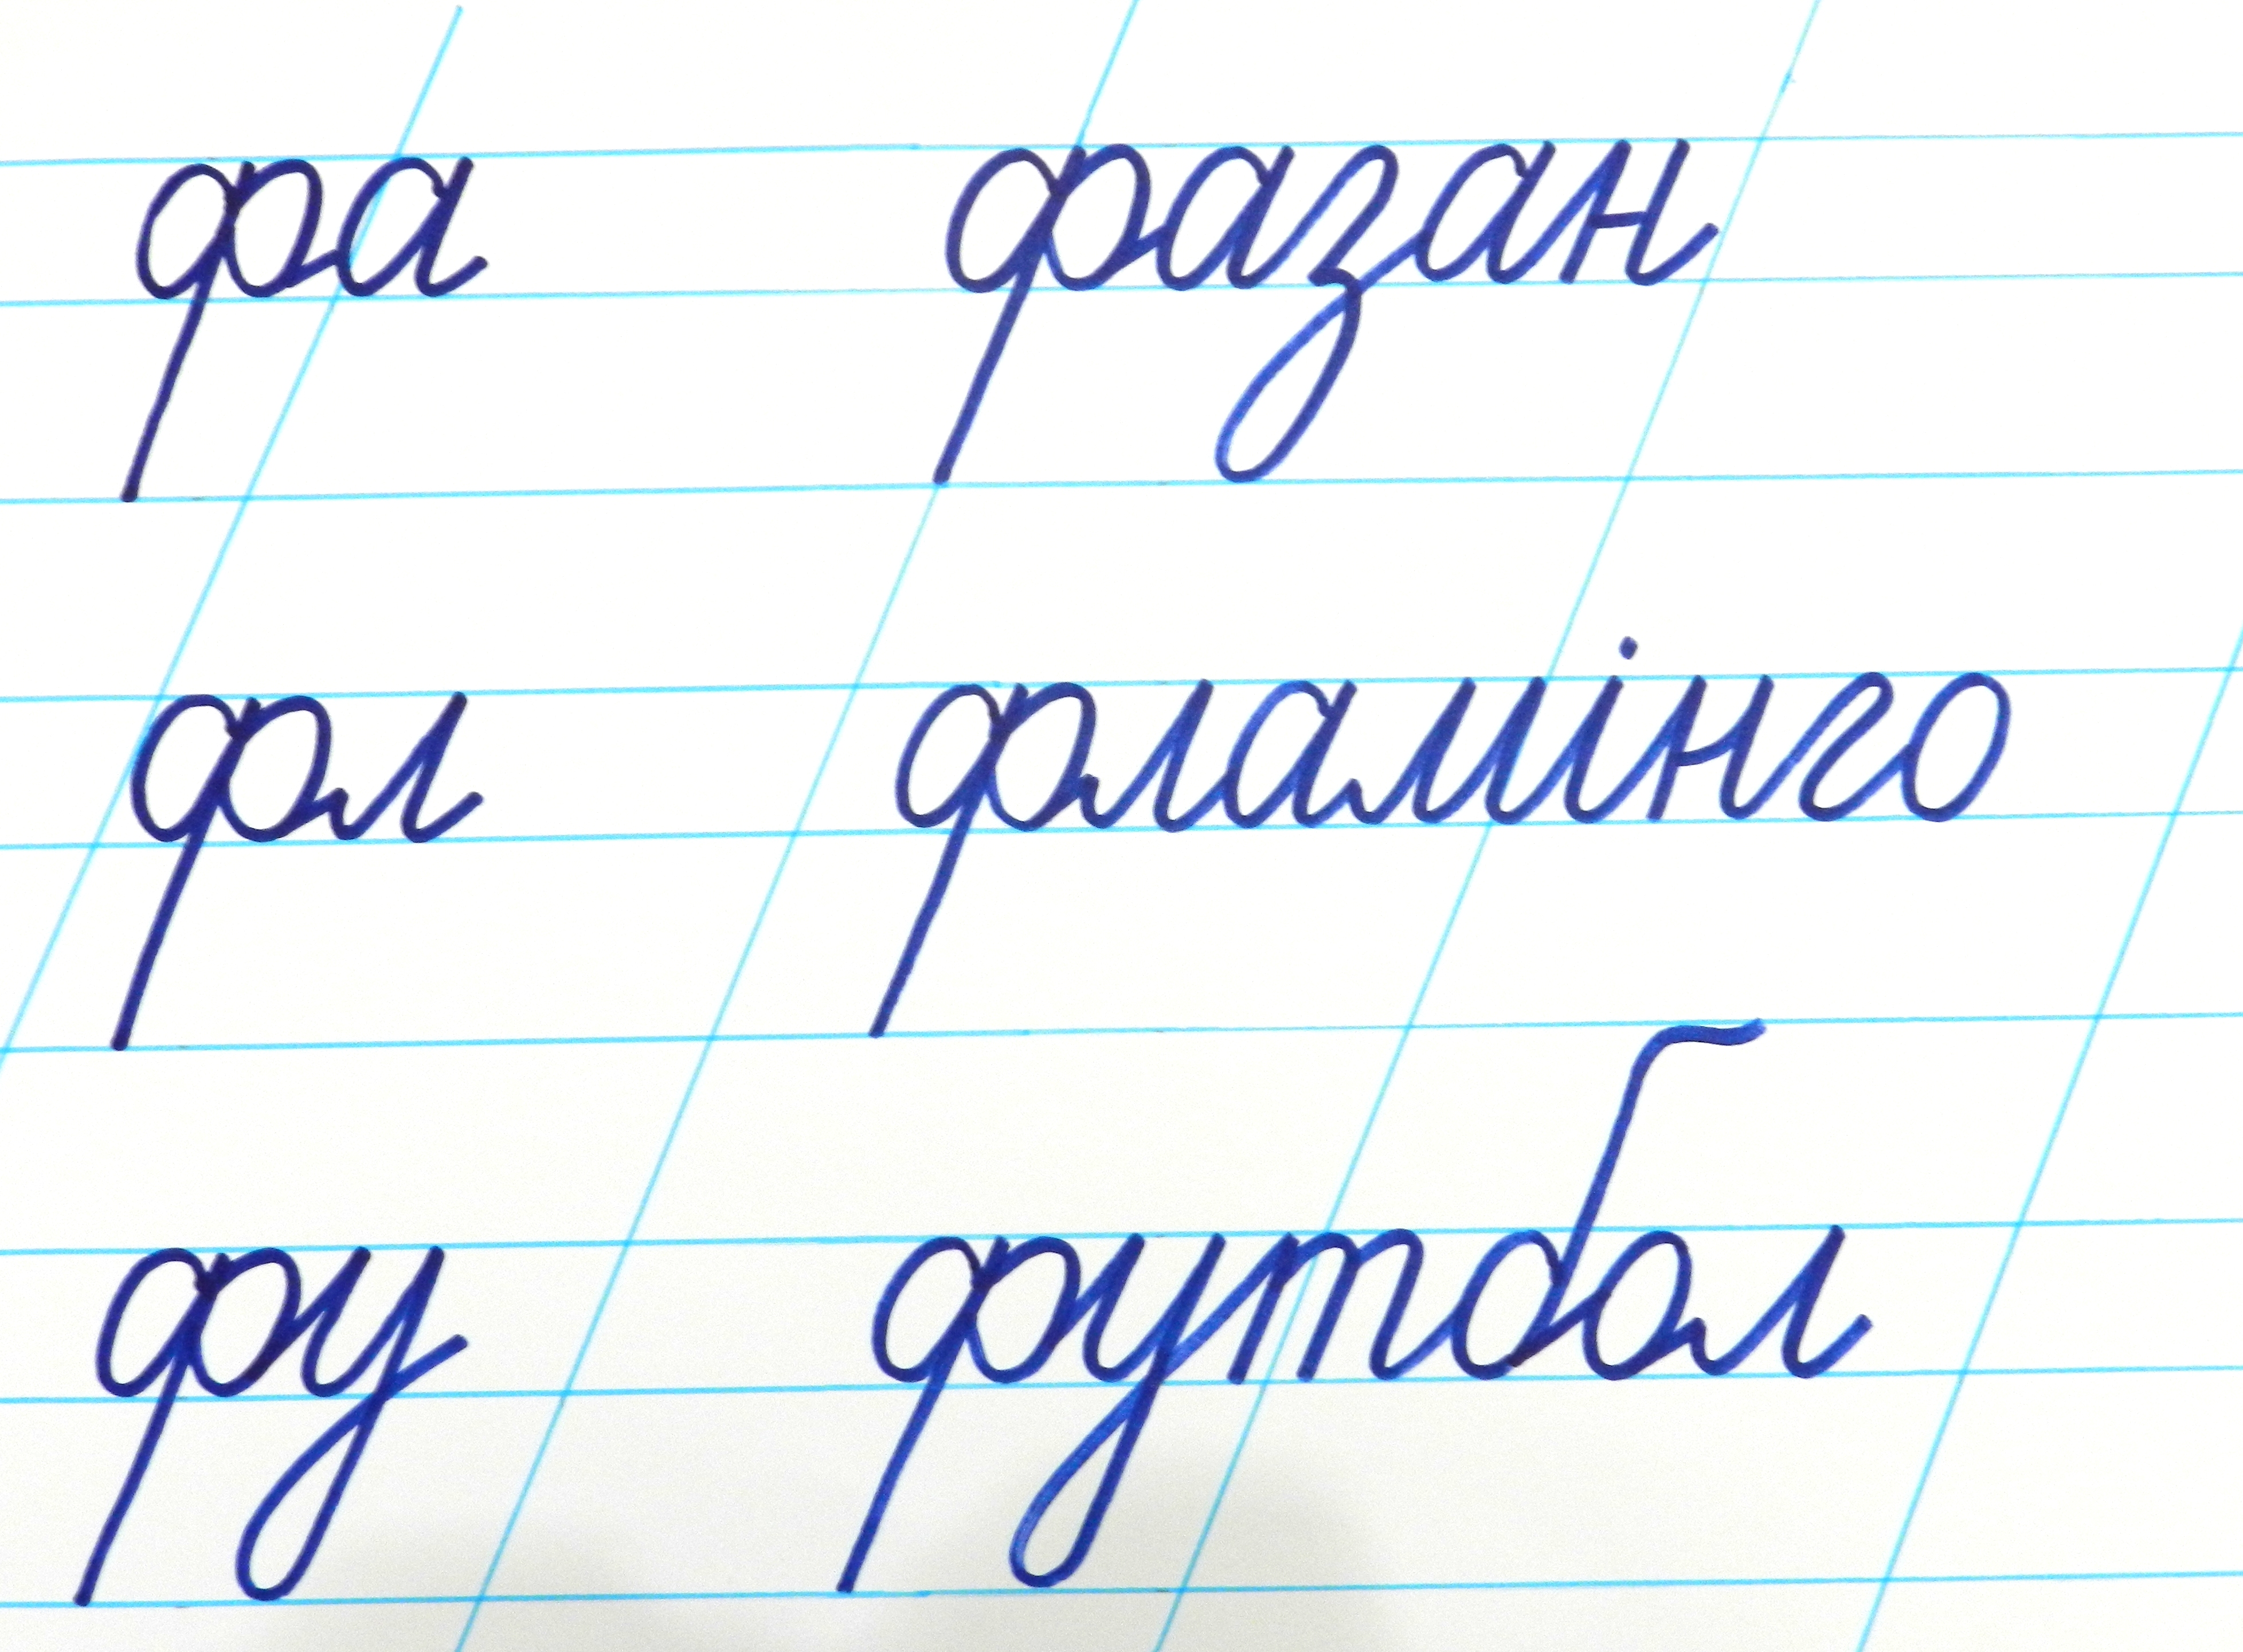 фа фазан
фл фламінго
фу футбол